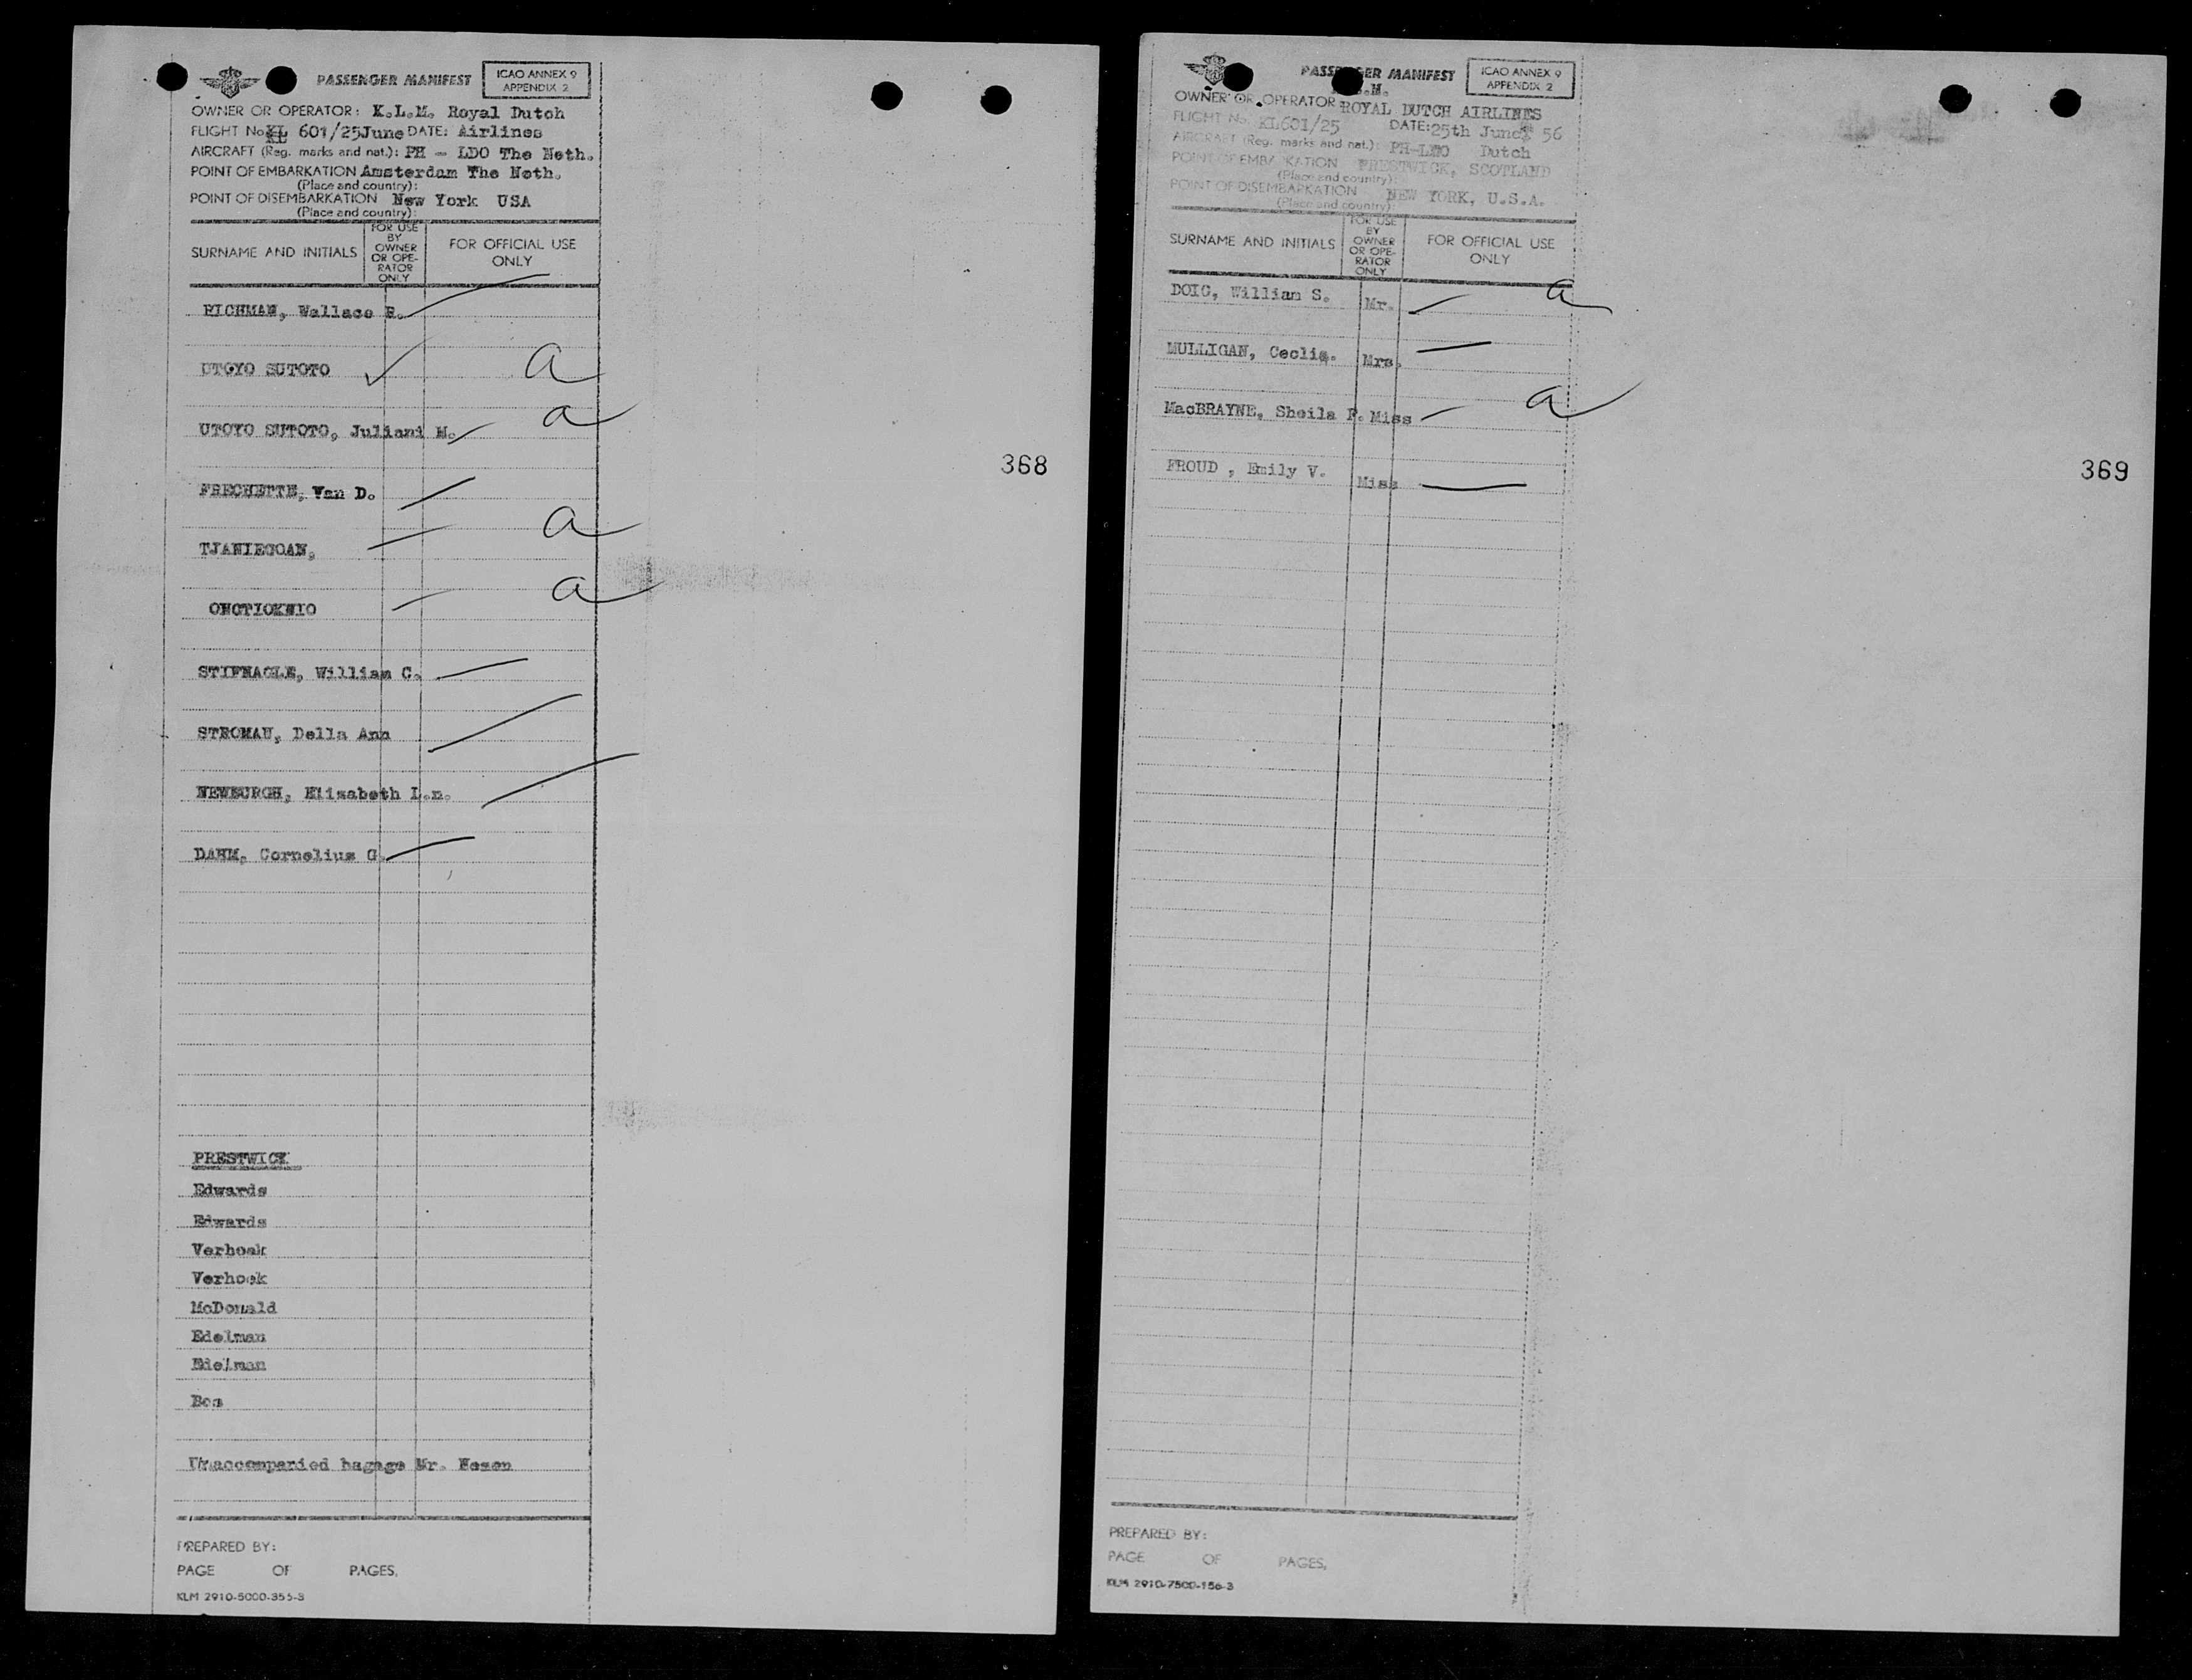 PASSENGER MANIFEST
ICAO ANNEX 9
APPENDIX 2
OWNER OR OPERATOR: K.L.M. Royal Dutch
FLIGHT No KL 601/25June DATE: Airlines
AIRCRAFT (Reg. marks and nat.): PH - LDO The Neth.
POINT OF EMBARKATION Amsterdam The Neth.
(Place and country):
POINT OF DISEMBARKATION New York USA
(Place and country):
SURNAME AND INITIALS
FOR USE
BY
OWNER
OR OPE-
RATOR
ONLY
FOR OFFICIAL USE
ONLY
RICHMAN, Wallace R.
UTOYO SUTOTO a
UTOYO SUTOTO, Juliani M. a
FRECHETTE, Van D.
a
a
STIFNAGLE, William C.
Della Ann
NEWBURGH, Elisabeth L.n.
DAHM, Cornelius G.
368
PRESTWICK
Edwards
Edwards
Verhoek
Verhoek
McDonald
Edelman
Edelman
Bos
Unaccompanied bagage Mr.
PREPARED BY:
PAGE OF PAGES.
KLM 2910-5000-355-3
PASSENGER MANIFEST
ICAO ANNEX 9
APPENDIX 2
OWNER OR OPERATOR ROYAL DUTCH AIRLINES
FLIGHT No. KL601/25 DATE: 25th June 56
AIRCRAFT (Reg. marks and nat.): PH-LDO Dutch
POINT OF EMBARKATION PRESTWICK, SCOTLAND
(Place and country):
POINT OF DISEMBARKATION NEW YORK, U.S.A.
(Place and country):
SURNAME AND INITIALS
FOR USE
BY
OWNER
OR OPE-
RATOR
ONLY
FOR OFFICIAL USE
ONLY
DOIG, William S. Mr. a
MULLIGAN, Ceclia. Mrs.
MacBRAYNE, Sheila F. Miss a
FROUD , Emily V. Miss
369
PREPARED BY:
PAGE OF PAGES.
KLM 2910-7500-156-3